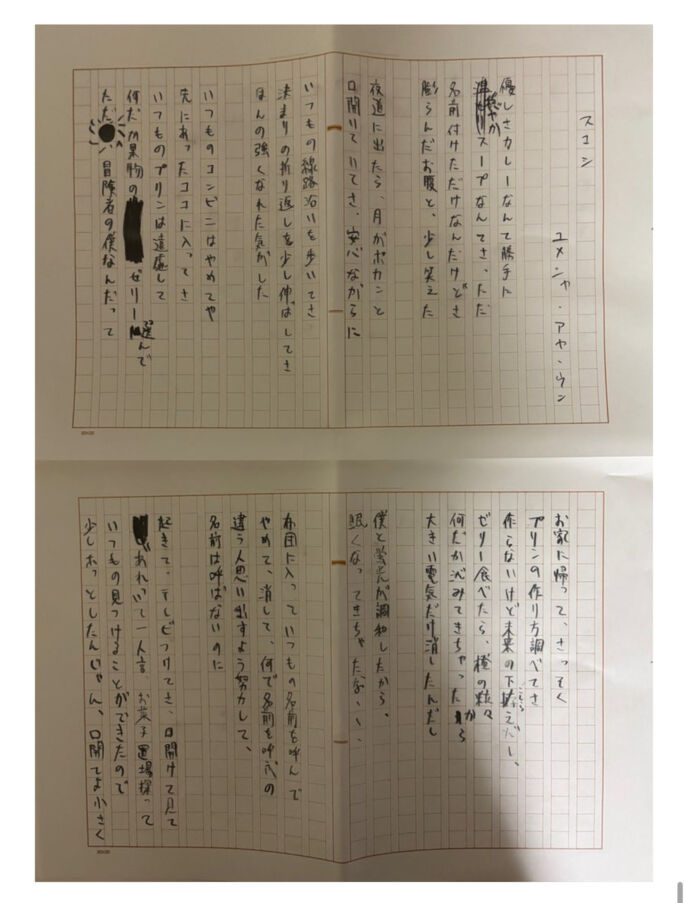 スコシ
ユメシャ・アヤ・ウン
優しさカレーなんて勝手に
穏やかスープなんてさ、ただ
名前付けただけなんだけどさ
膨らんだお腹と、少し笑えた
夜道に出たら、月がポカンと
口開いていてさ、安心ながらに
いつもの線路沿いを歩いてさ
決まりの折り返しを少し伸ばしてさ
ほんの強くなれた気がした
いつものコンビニはやめてや
先にあったココに入ってさ
いつものプリンは遠慮して
何だか果物のゼリー選んで
ただ冒険者の僕なんだって
お家に帰って、さっそく
プリンの作り方調べてさ
作らないけど未来の下拵えだし、
こしら
ゼリー食べたら、橙の粒々
何だか沁みてきちゃったから
大きい電気だけ消したんだし
僕と蛍光が調和したから、
眠くなってきちゃったな、、、
布団に入っていつもの名前を呼んで
やめて、消して、何で名前を呼ぶの
違う人思い出すよう努力して、
名前は呼ばないのに
起きて、テレビつけてさ、口開けて見て
あれ、って一人言、お菓子置場探って
いつもの見つけることができたので
少しホっとしたんじゃん、口開てよ小さく
20×20
20×20